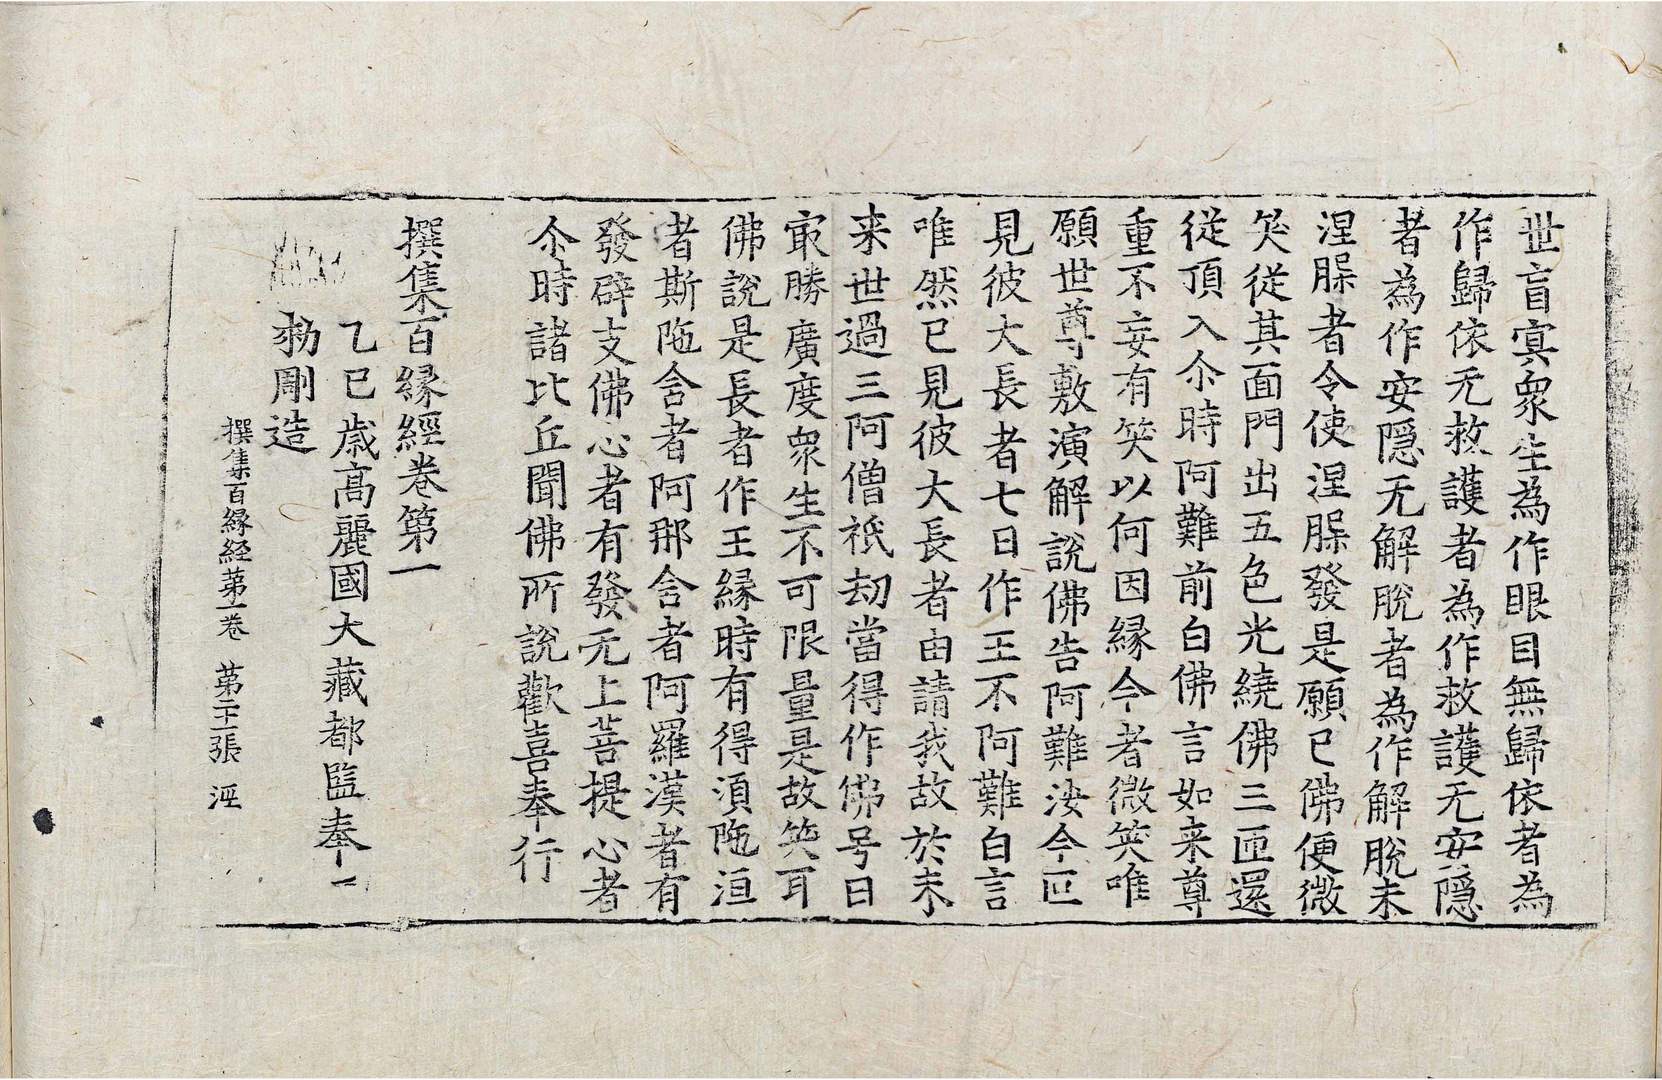 世盲冥衆生為作眼目無歸依者為
作歸依无救護者為作救護无安隱
者為作安隱无解脫者為作解脫未
涅槃者令使涅槃發是願已佛便微
笑從其面門出五色光繞佛三匝還
從頂入尒時阿難前白佛言如来尊
重不妄有笑以何因縁今者微笑唯
願世尊敷演解說佛告阿難汝今叵
見彼大長者七日作王不阿難白言
唯然已見彼大長者由請我故於未
来世過三阿僧祇劫當得作佛号曰
㝡勝廣度衆生不可限量是故笑耳
佛說是長者作王縁時有得湏陁洹
者斯陁含者阿那含者阿羅漢者有
發辟支佛心者有發无上菩提心者
尒時諸比丘聞佛所說歡喜奉行
撰集百縁經卷第一
乙巳歳高麗國大藏都監奉
勑彫造
撰集百縁経第一卷 第二十二張